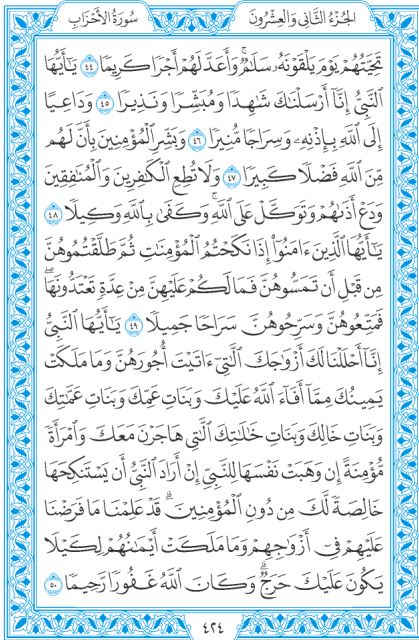 الجُزْءُ الثَّانِي وَالعِشْرُونَ سُورَةُ الأَحْزَابِ
تَحِيَّتُهُمْ يَوْمَ يَلْقَوْنَهُۥ سَلَٰمٌۚ وَأَعَدَّ لَهُمْ أَجْرًا كَرِيمًا ٤٤ يَٰٓأَيُّهَا
ٱلنَّبِيُّ إِنَّآ أَرْسَلْنَٰكَ شَٰهِدًا وَمُبَشِّرًا وَنَذِيرًا ٤٥ وَدَاعِيًا
إِلَى ٱللَّهِ بِإِذْنِهِۦ وَسِرَاجًا مُّنِيرًا ٤٦ وَبَشِّرِ ٱلْمُؤْمِنِينَ بِأَنَّ لَهُم
مِّنَ ٱللَّهِ فَضْلًا كَبِيرًا ٤٧ وَلَا تُطِعِ ٱلْكَٰفِرِينَ وَٱلْمُنَٰفِقِينَ
وَدَعْ أَذَىٰهُمْ وَتَوَكَّلْ عَلَى ٱللَّهِۚ وَكَفَىٰ بِٱللَّهِ وَكِيلًا ٤٨
يَٰٓأَيُّهَا ٱلَّذِينَ ءَامَنُوٓا۟ إِذَا نَكَحْتُمُ ٱلْمُؤْمِنَٰتِ ثُمَّ طَلَّقْتُمُوهُنَّ
مِن قَبْلِ أَن تَمَسُّوهُنَّ فَمَا لَكُمْ عَلَيْهِنَّ مِنْ عِدَّةٍ تَعْتَدُّونَهَاۖ
فَمَتِّعُوهُنَّ وَسَرِّحُوهُنَّ سَرَاحًا جَمِيلًا ٤٩ يَٰٓأَيُّهَا ٱلنَّبِيُّ
إِنَّآ أَحْلَلْنَا لَكَ أَزْوَٰجَكَ ٱلَّٰتِيٓ ءَاتَيْتَ أُجُورَهُنَّ وَمَا مَلَكَتْ
يَمِينُكَ مِمَّآ أَفَآءَ ٱللَّهُ عَلَيْكَ وَبَنَاتِ عَمِّكَ وَبَنَاتِ عَمَّٰتِكَ
وَبَنَاتِ خَالِكَ وَبَنَاتِ خَٰلَٰتِكَ ٱلَّٰتِي هَاجَرْنَ مَعَكَ وَٱمْرَأَةً
مُّؤْمِنَةً إِن وَهَبَتْ نَفْسَهَا لِلنَّبِيِّ إِنْ أَرَادَ ٱلنَّبِيُّ أَن يَسْتَنكِحَهَا
خَالِصَةً لَّكَ مِن دُونِ ٱلْمُؤْمِنِينَۗ قَدْ عَلِمْنَا مَا فَرَضْنَا
عَلَيْهِمْ فِيٓ أَزْوَٰجِهِمْ وَمَا مَلَكَتْ أَيْمَٰنُهُمْ لِكَيْلَا
يَكُونَ عَلَيْكَ حَرَجٌۗ وَكَانَ ٱللَّهُ غَفُورًا رَّحِيمًا ٥٠
٤٢٤